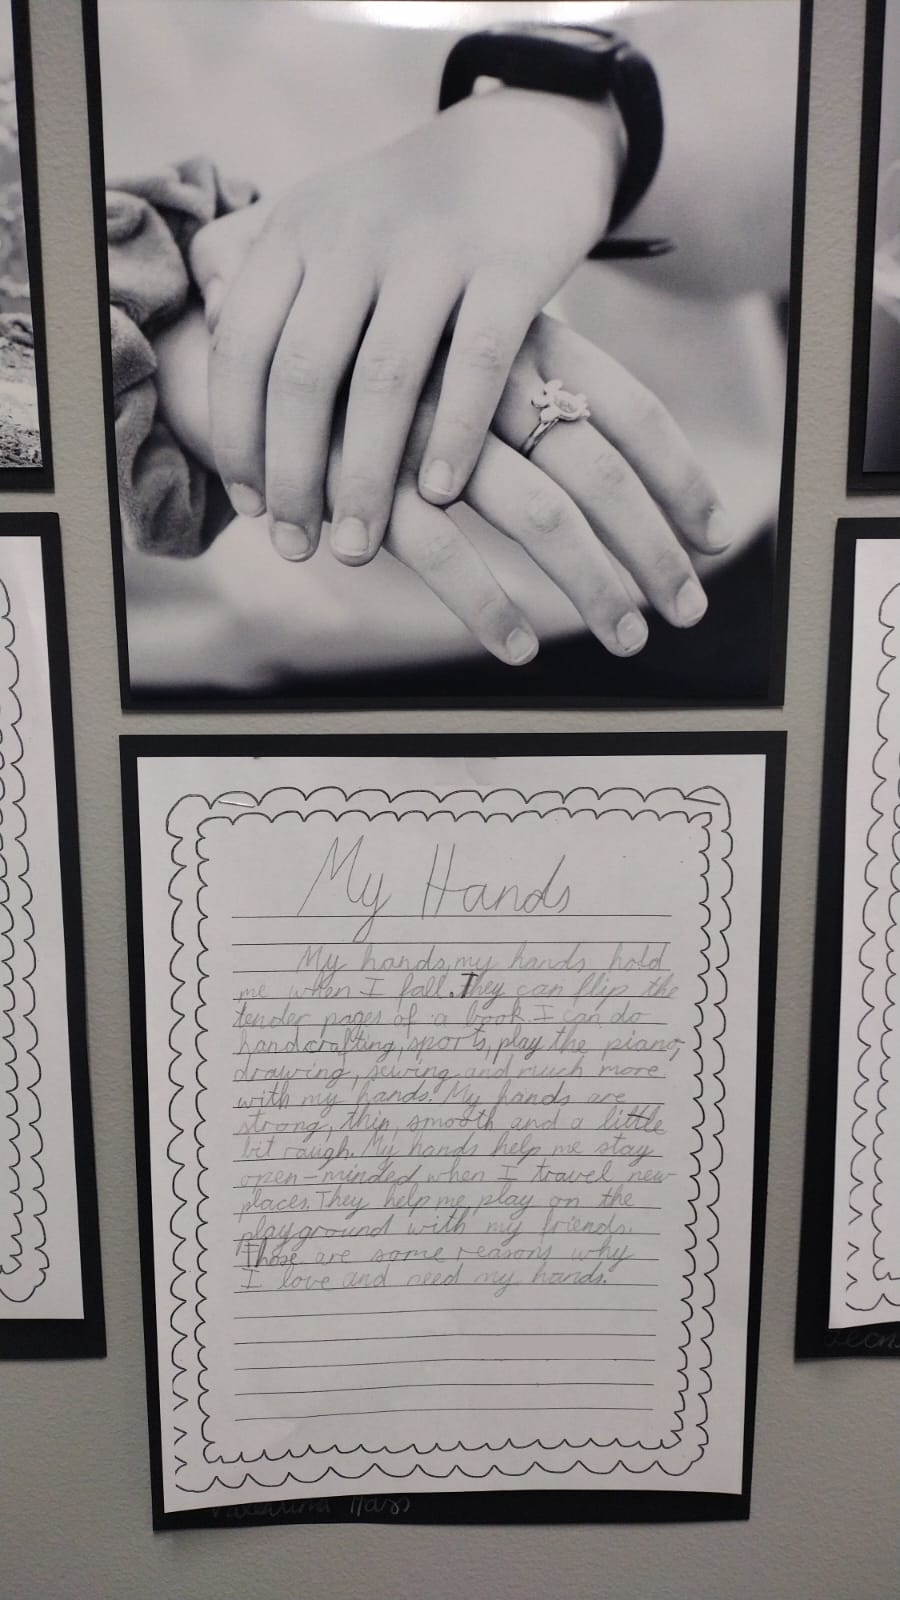 My Hands
My hands, my hands hold
me when I fall. They can flip the
tender pages of a book. I can do
handcrafting, sports, play the piano,
drawing, sewing and much more
with my hands! My hands are
strong, thin, smooth and a little
bit rough. My hands help me stay
open-minded when I travel new
places. They help me play on the
playground with my friends.
Those are some reasons why
I love and need my hands.